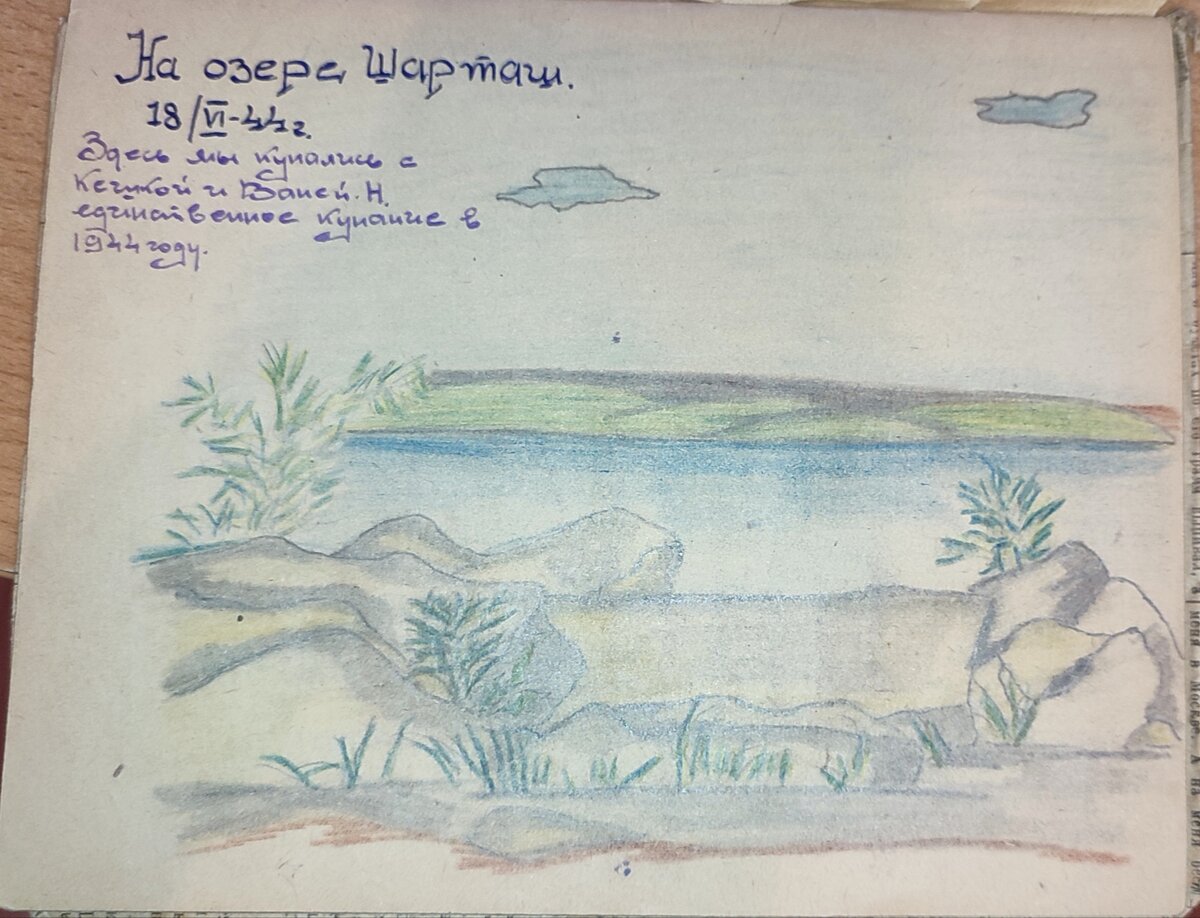 На озере Шарташ.
18/VI-44г.
Здесь мы купались с
Кешкой и Ваней. Н.
единственное купание в
1944 году.